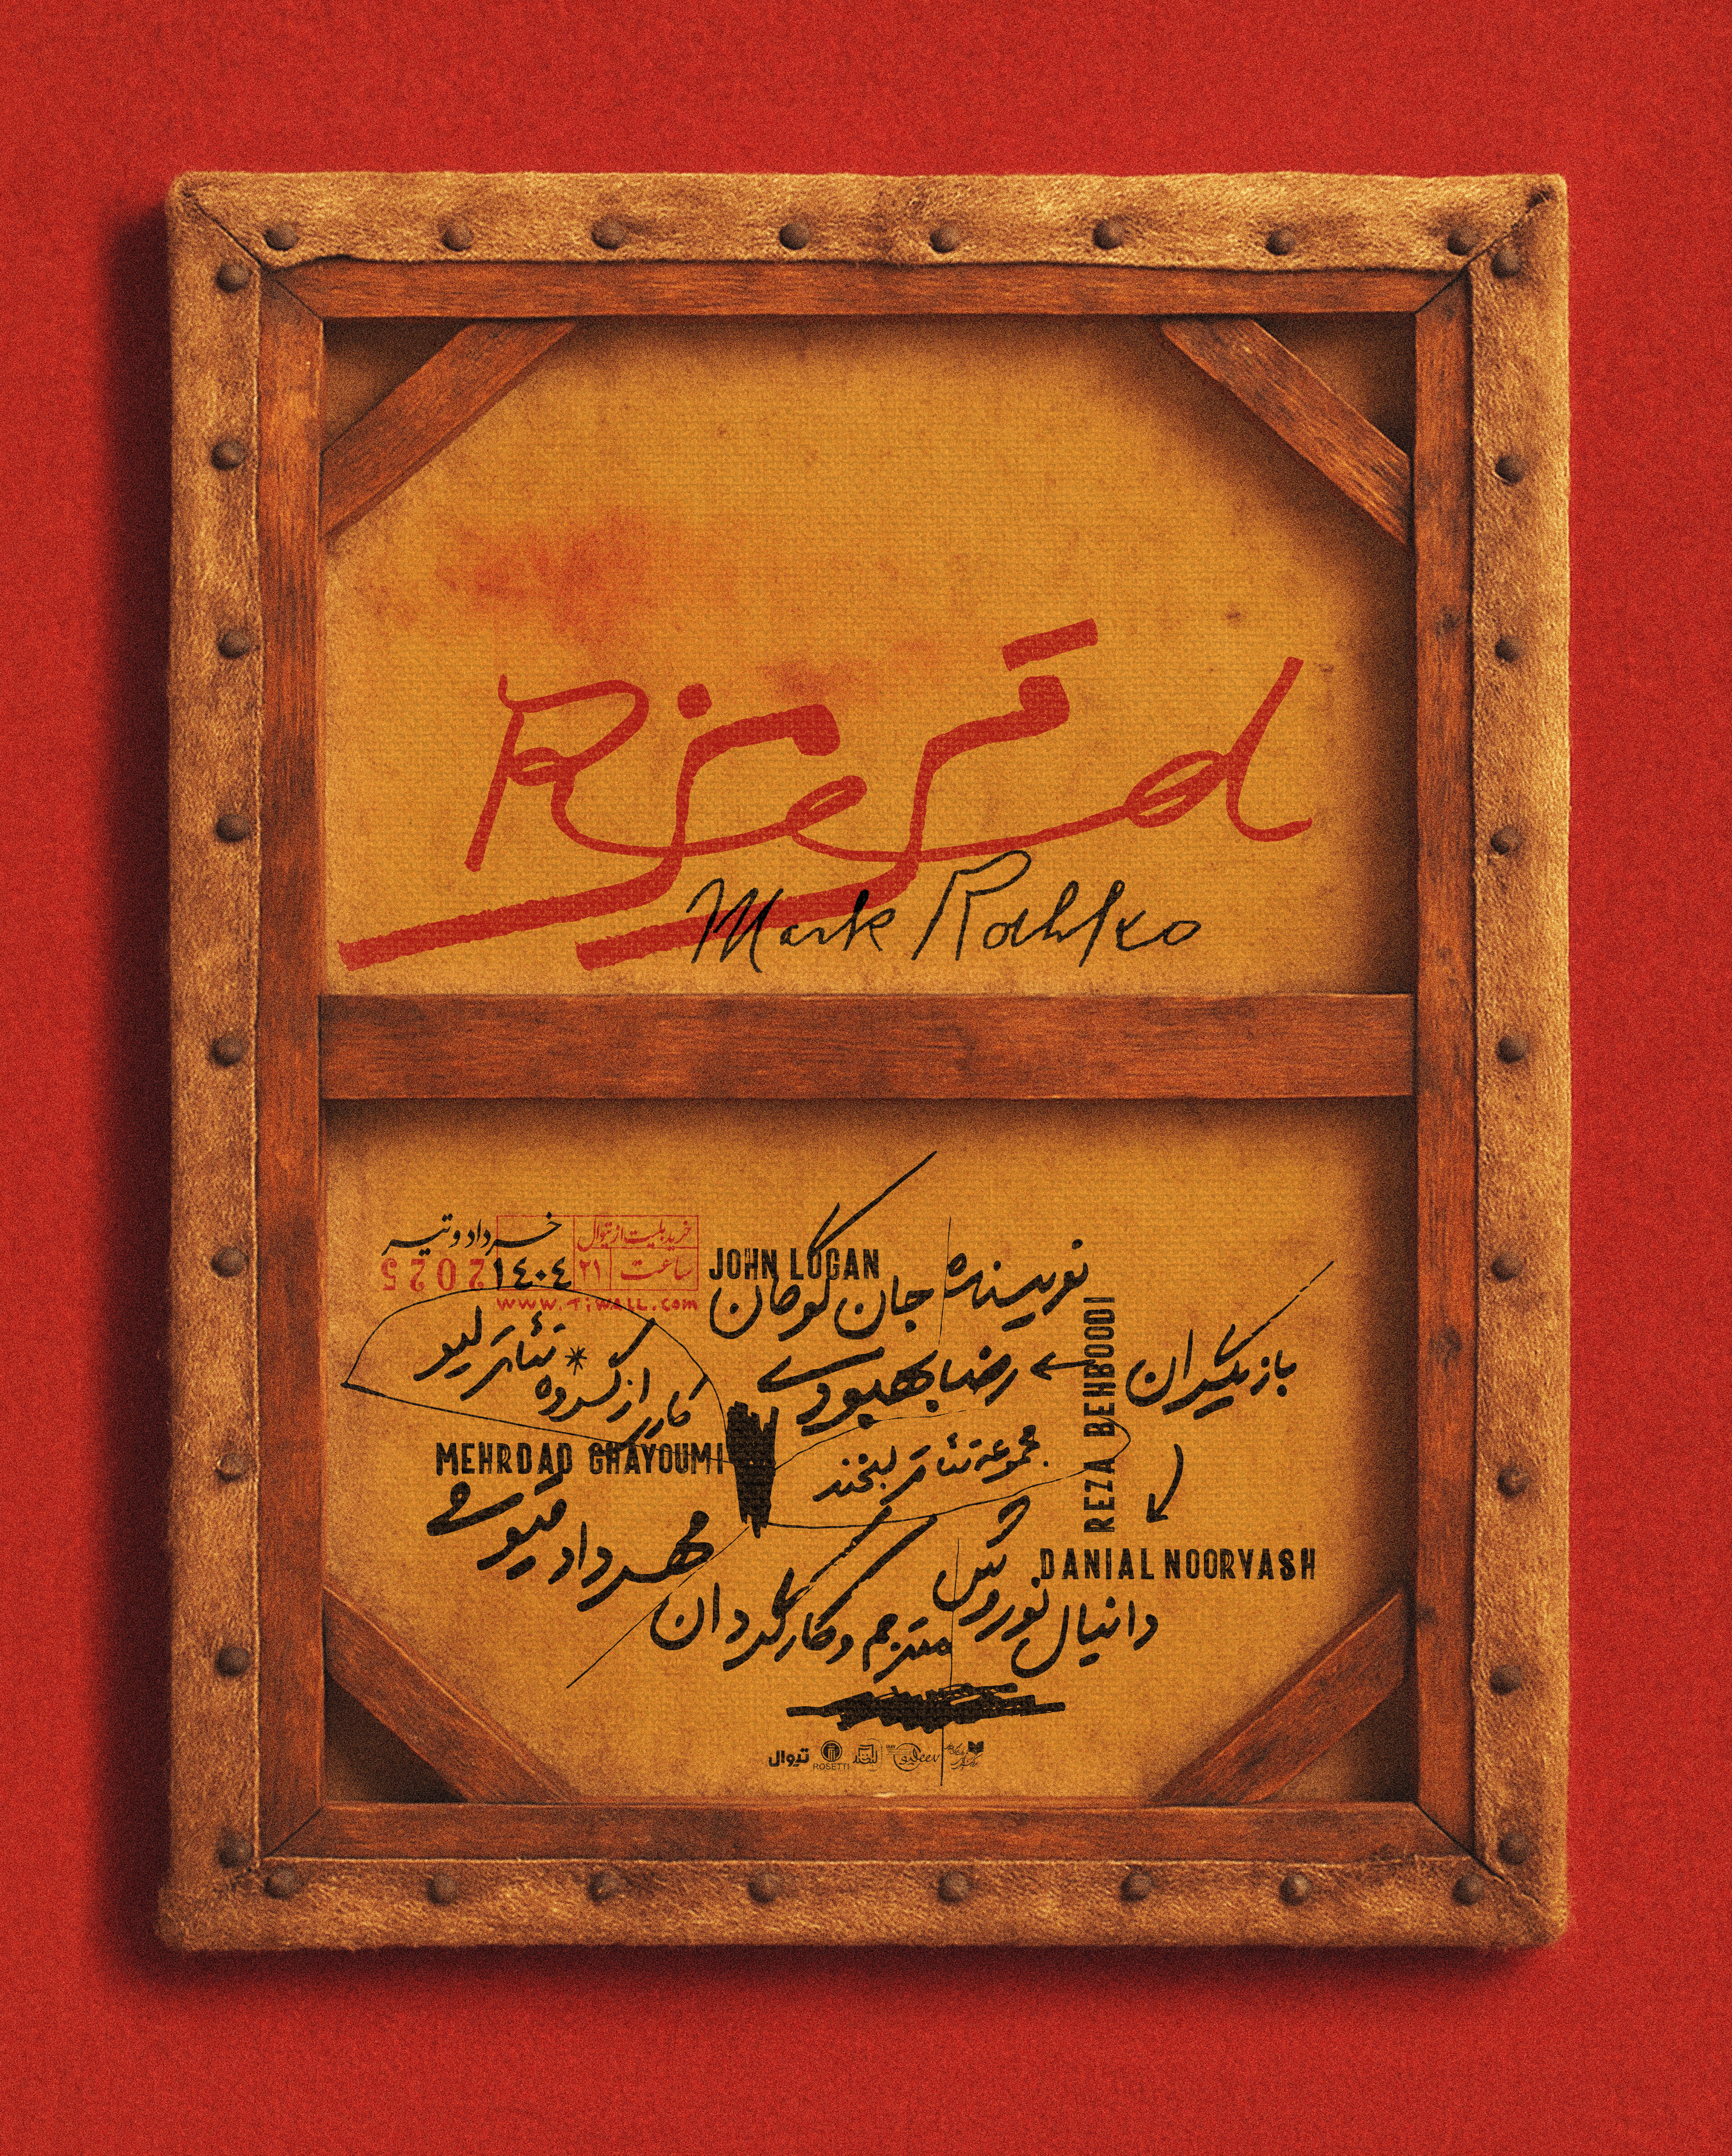 Red
قرمز
Mark Rothko
خرداد و تیر
۱۴۰۴
2025
خرید بلیت از تیوال
ساعت ۲۱
www.Tiwall.com
JOHN LOGAN
نویسنده جان لوگان
بازیگران
رضا بهبودی
REZA BEHBOODI
کاری از گروه تئاتر لیو
مجموعه تئاتر لبخند
MEHRDAD GHAYOUMI
مهرداد قیومی
DANIAL NOORVASH
دانیال نوروش
مترجم و کارگردان
تیوال
ROSETTI